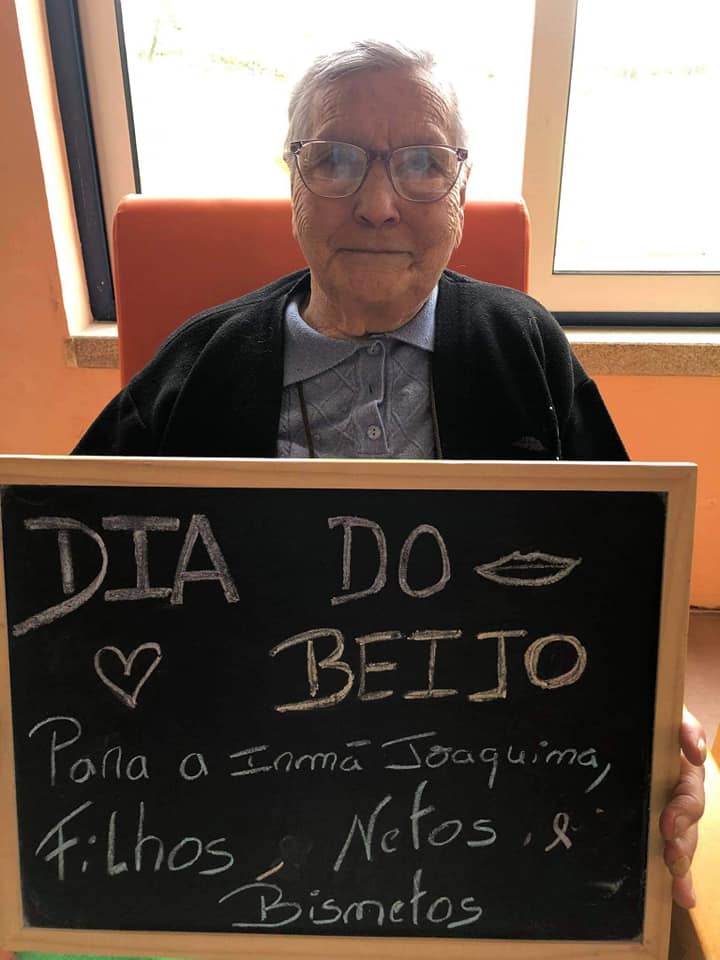 DIA DO
BEIJO
Para a Irmã Joaquima,
Filhos, Netos, e
Bisnetos